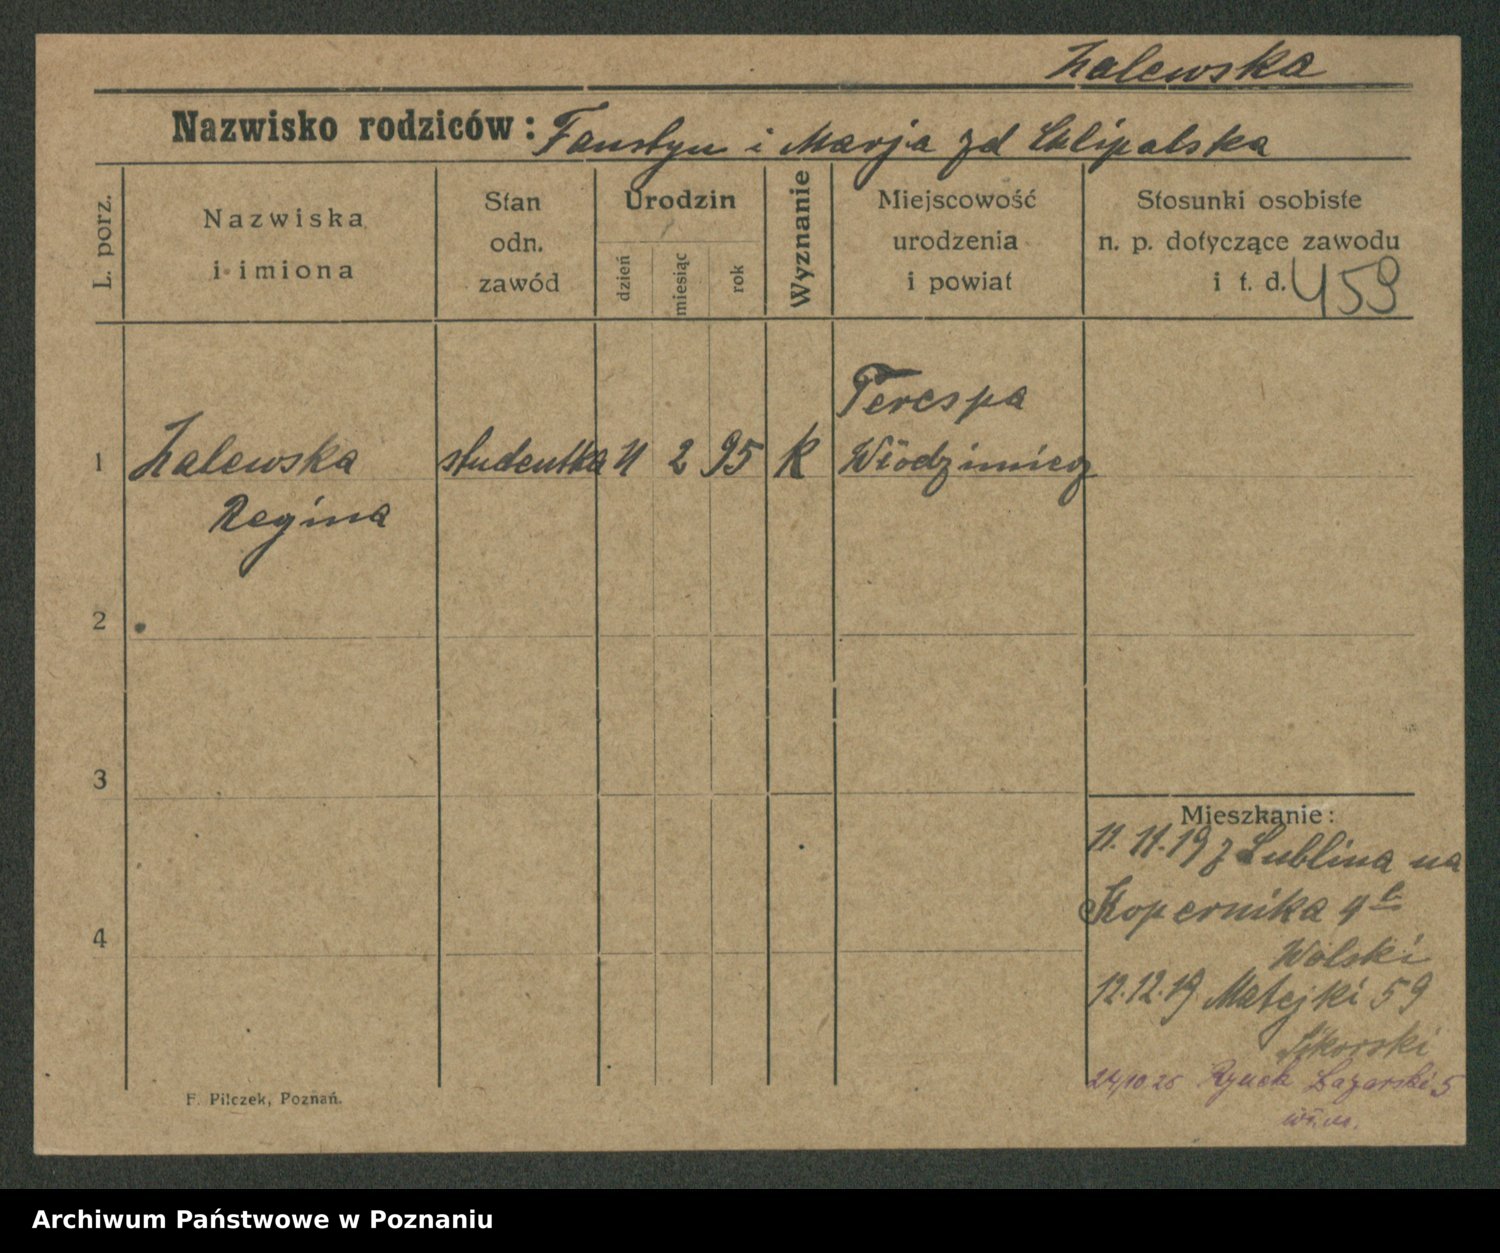 Zalewska
Nazwisko rodziców: Faustyn i Marja zd Chlipalska
L. porz.
Nazwiska
i imiona
Stan
odn.
zawód
Urodzin
dzień
miesiąc
rok
Wyznanie
Miejscowość
urodzenia
i powiat
Stosunki osobiste
n. p. dotyczące zawodu
i t. d. 459
1 Zalewska studentka 11 2 95 k Terespa
Włodzimierz
Regina
2
3
4
Mieszkanie:
11.11.19 z Lublina na
Kopernika 4
Wolski
12.12.19 Matejki 59
Sikorski
24/10.25 Rynek Łazarski 5
wł. m.
F. Pilczek, Poznań.
Archiwum Państwowe w Poznaniu